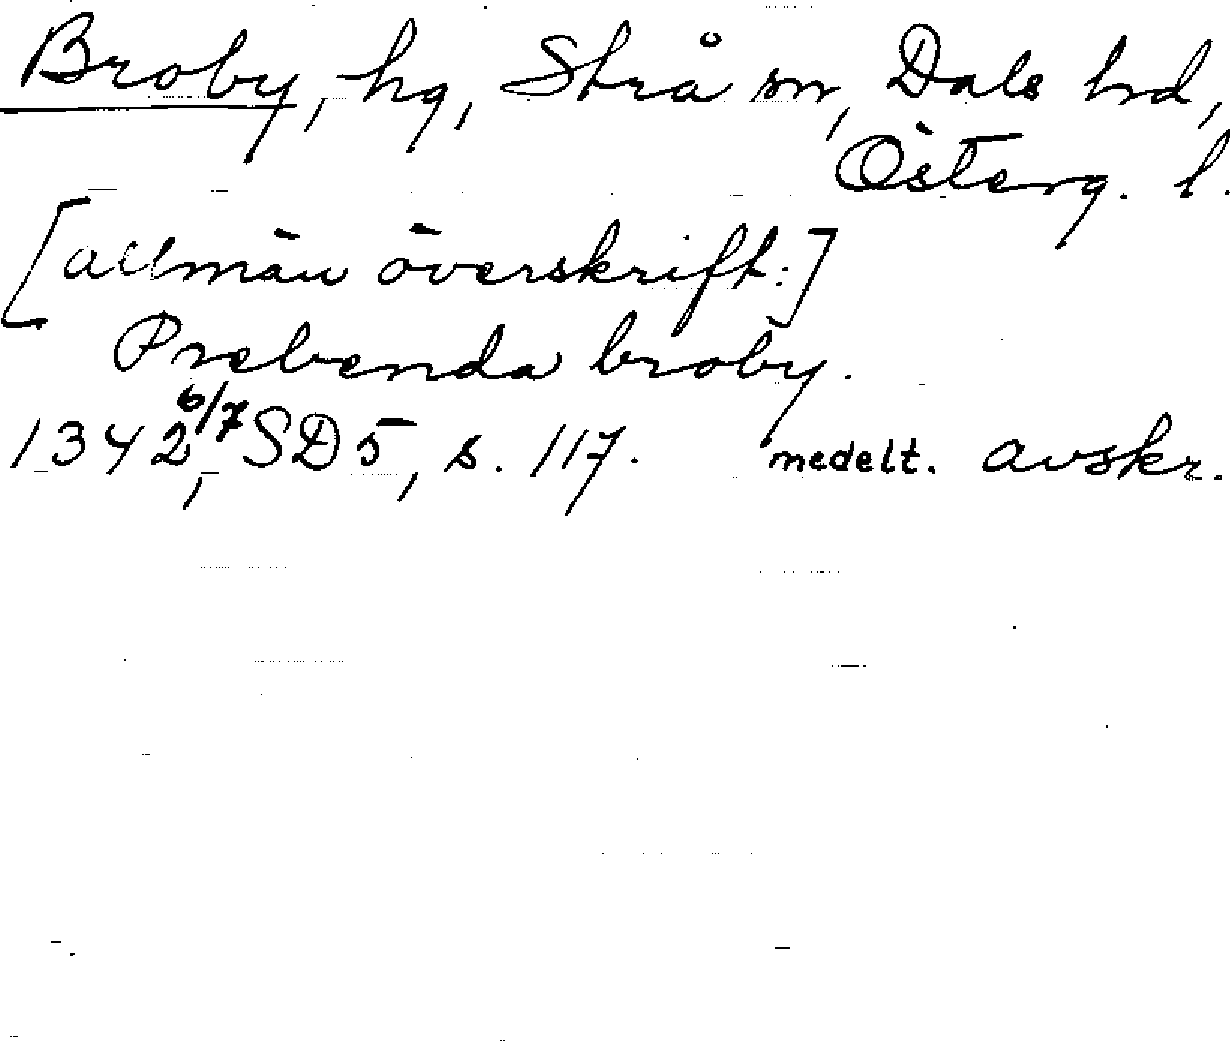 Broby, hg, Strå sn, Dals hd,
Österg. l.
[allmän överskrift:]
Prebenda broby.
1342 6/7, SD 5, s. 117. medelt. avskr.